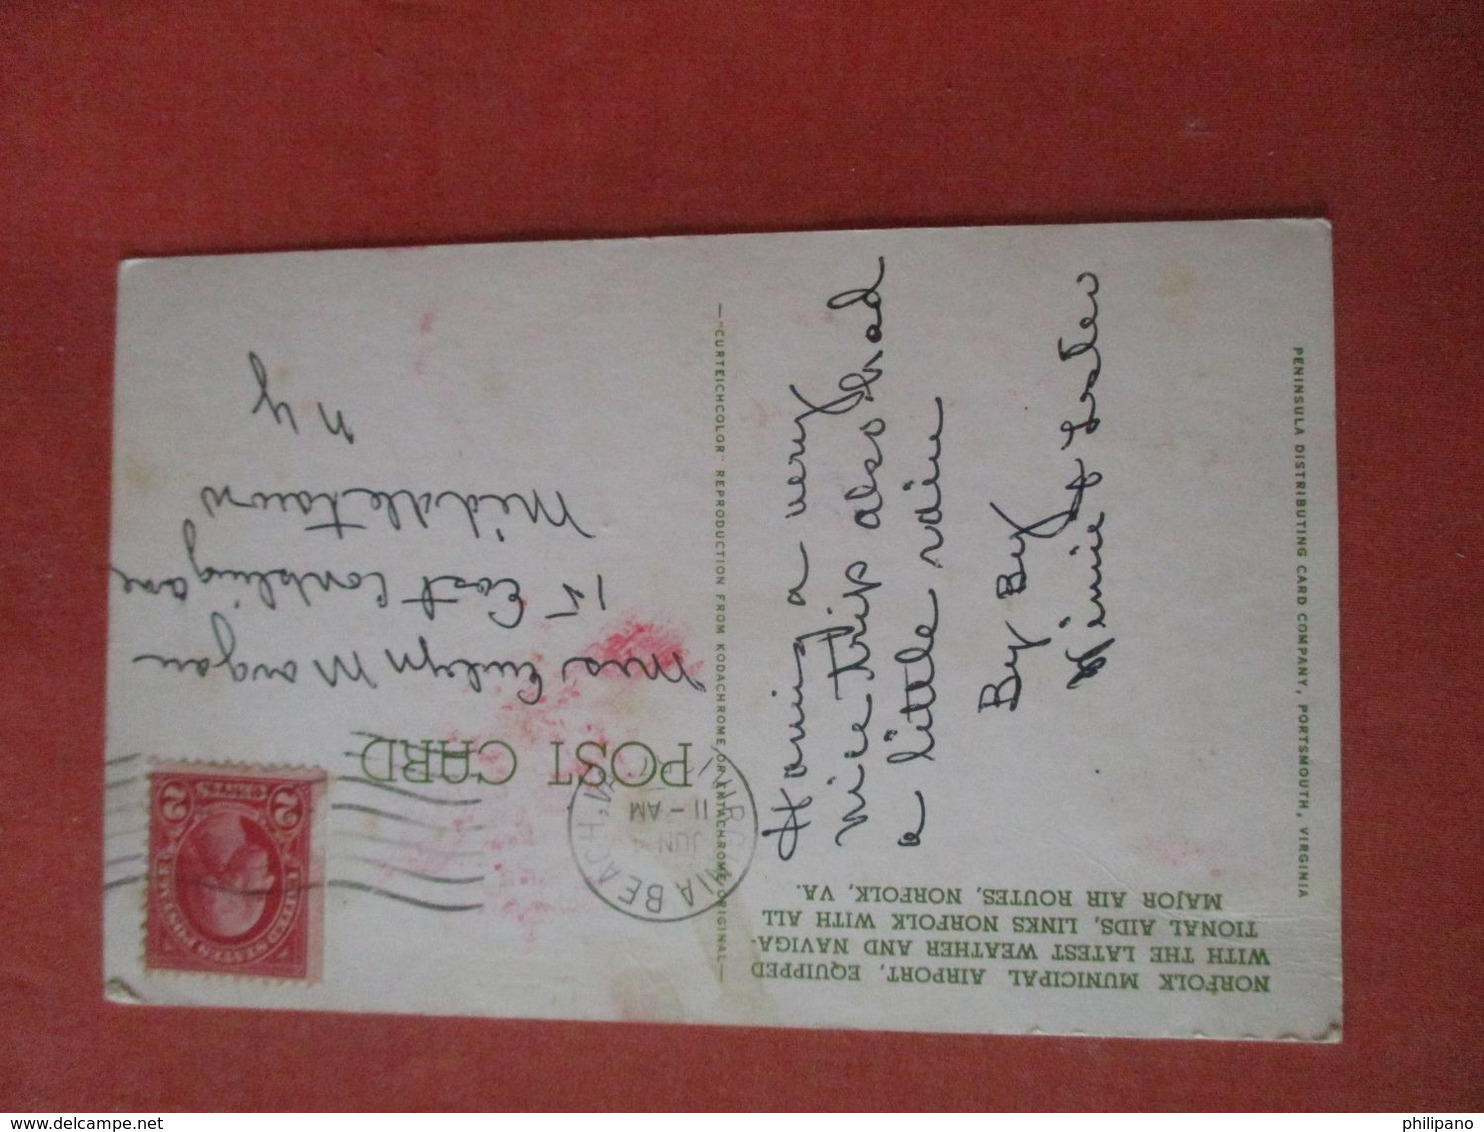 NORFOLK MUNICIPAL AIRPORT, EQUIPPED
WITH THE LATEST WEATHER AND NAVIGA-
TIONAL AIDS, LINKS NORFOLK WITH ALL
MAJOR AIR ROUTES, NORFOLK, VA.
Having a very
nice trip also had
a little rain
By By
Winnie & Lester
PENINSULA DISTRIBUTING CARD COMPANY, PORTSMOUTH, VIRGINIA
—"CURTEICHCOLOR" REPRODUCTION FROM KODACHROME OR EKTACHROME ORIGINAL—
POST CARD
VIRGINIA BEACH, VA.
JUN 4
11-AM
UNITED STATES POSTAGE
2 CENTS 2
Mrs Evelyn Morgan
15 East Conkling ave
Middletown
N Y
philipano
delcampe.net